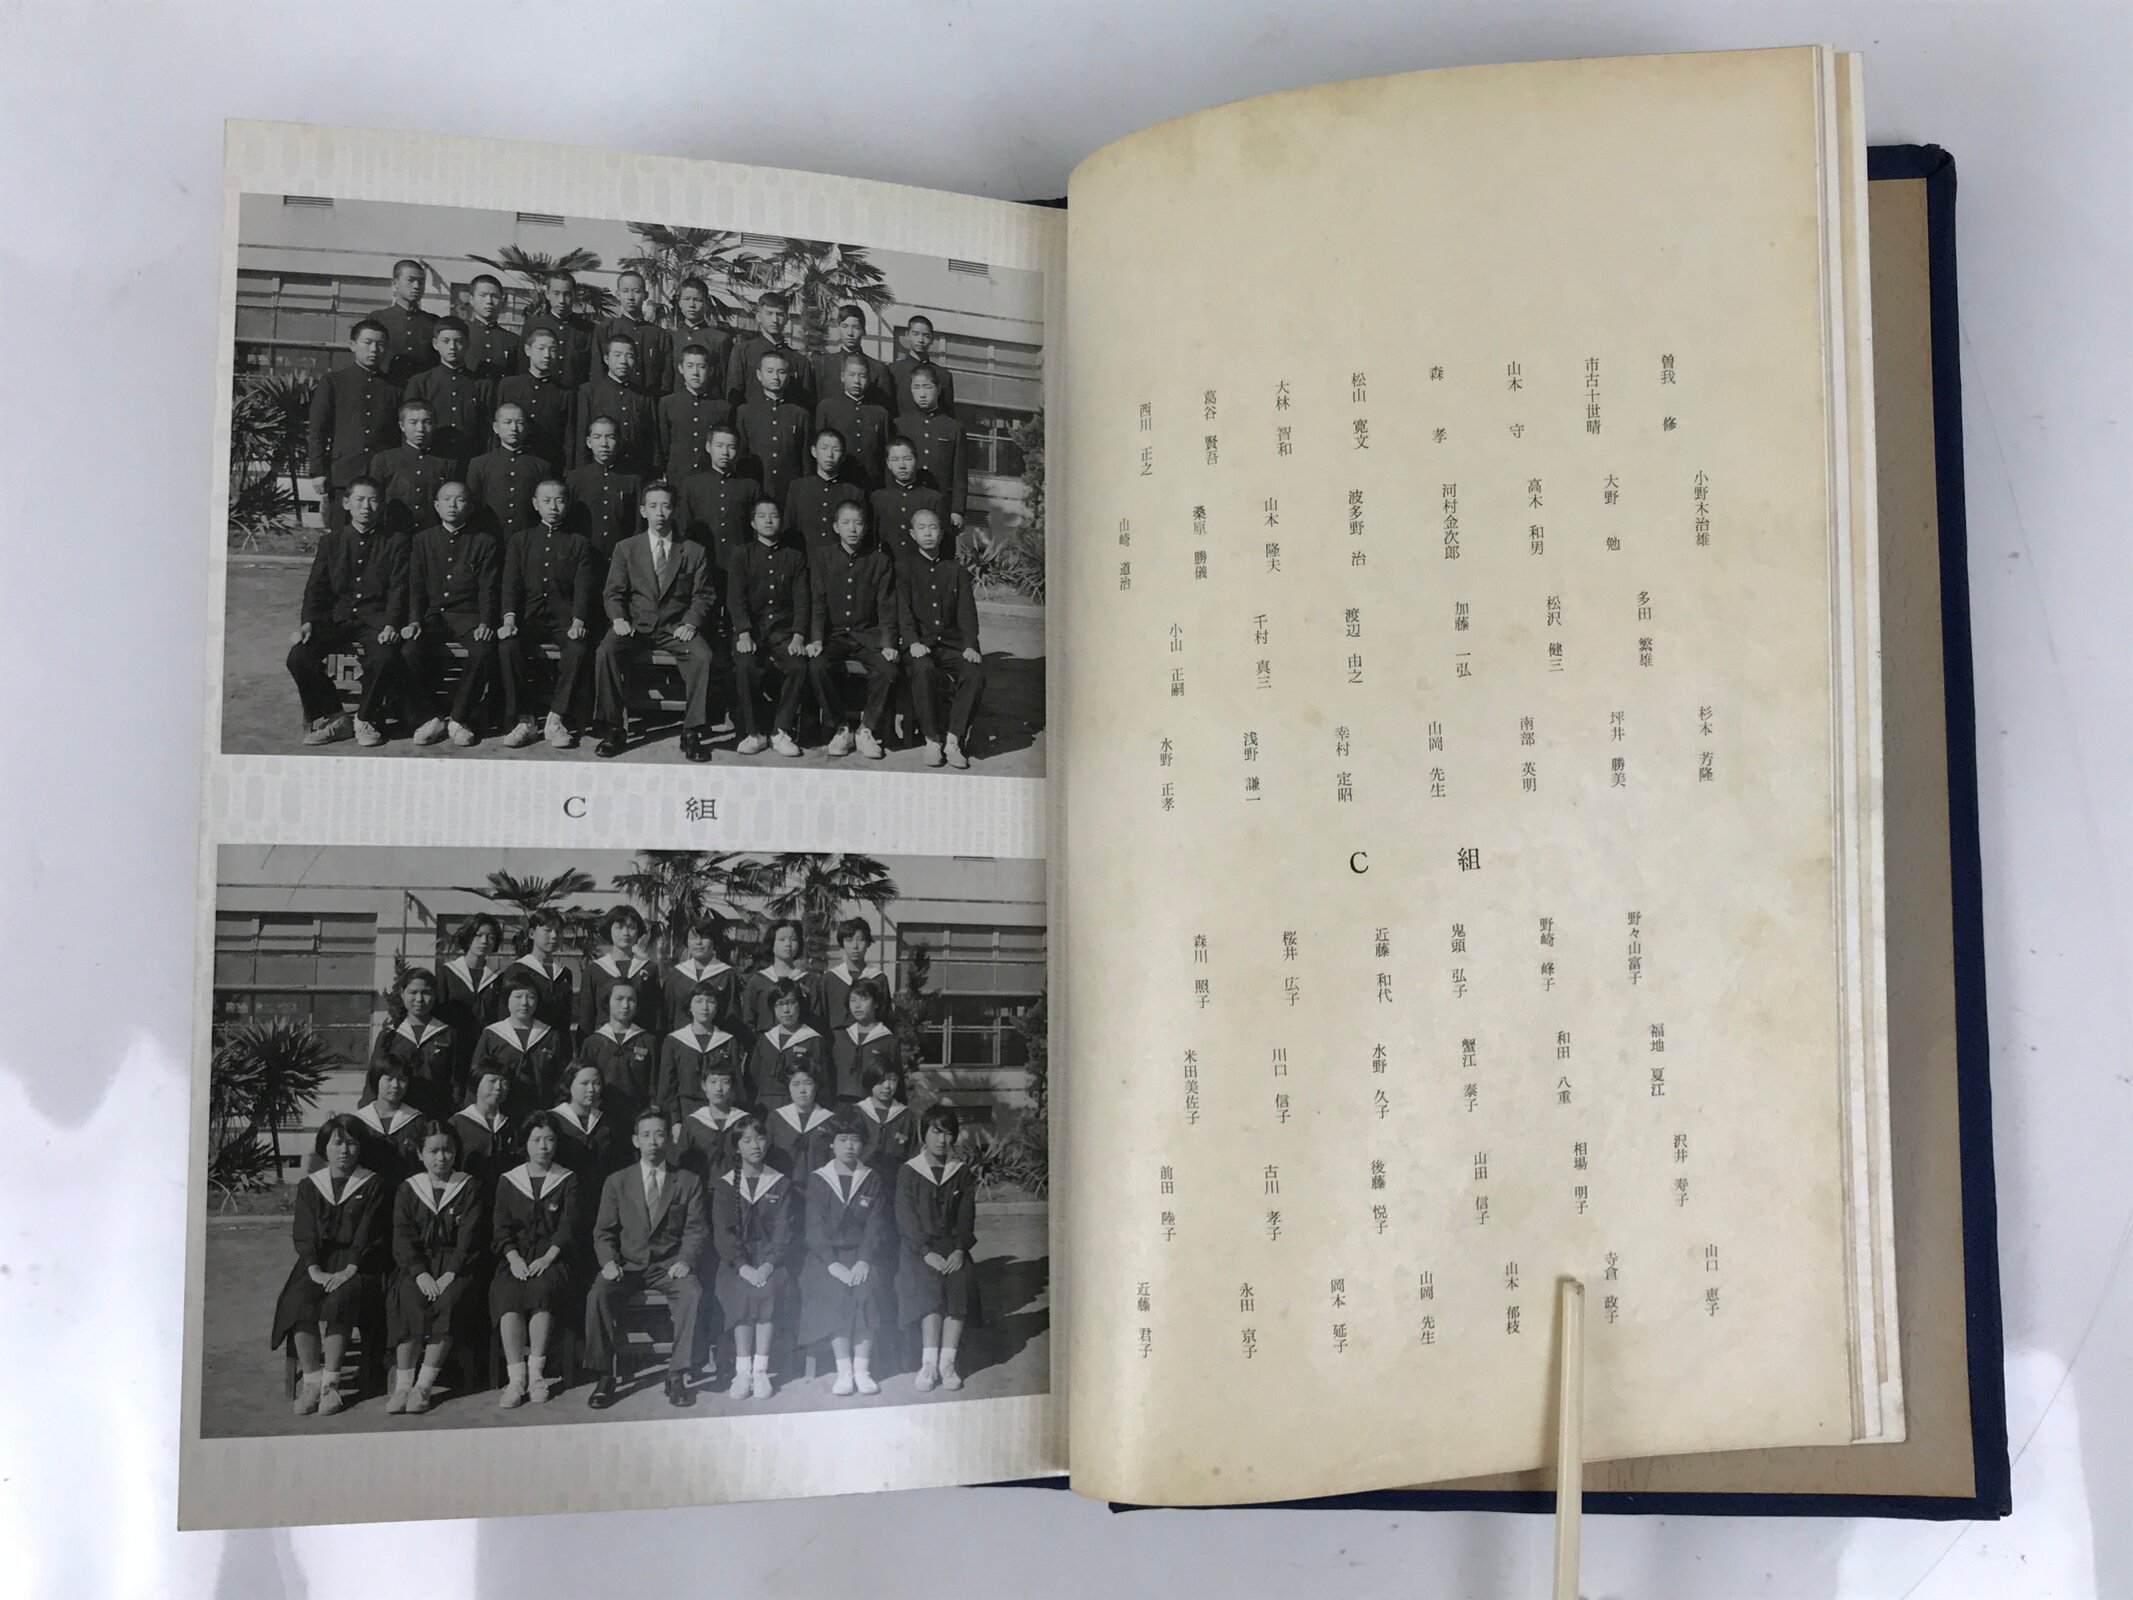 C 組
西川 正之
葛谷 賢吾
大林 智和
松山 寛文
森 孝
山本 守
市古十世晴
曽我 修
山崎 道治
桑原 勝儀
山本 隆夫
波多野 治
河村金次郎
高木 和男
大野 勉
小野木治雄
小山 正嗣
千村 真三
渡辺 由之
加藤 一弘
松沢 健三
多田 繁雄
水野 正孝
浅野 謙一
幸村 定昭
山岡 先生
南部 英明
坪井 勝美
杉本 芳隆
C 組
森川 照子
桜井 広子
近藤 和代
鬼頭 弘子
野崎 峰子
野々山富子
米田美佐子
川口 信子
水野 久子
蟹江 泰子
和田 八重
福地 夏江
前田 陸子
古川 孝子
後藤 悦子
山田 信子
相場 明子
沢井 寿子
近藤 君子
永田 京子
岡本 延子
山岡 先生
山本 郁枝
寺倉 政子
山口 恵子